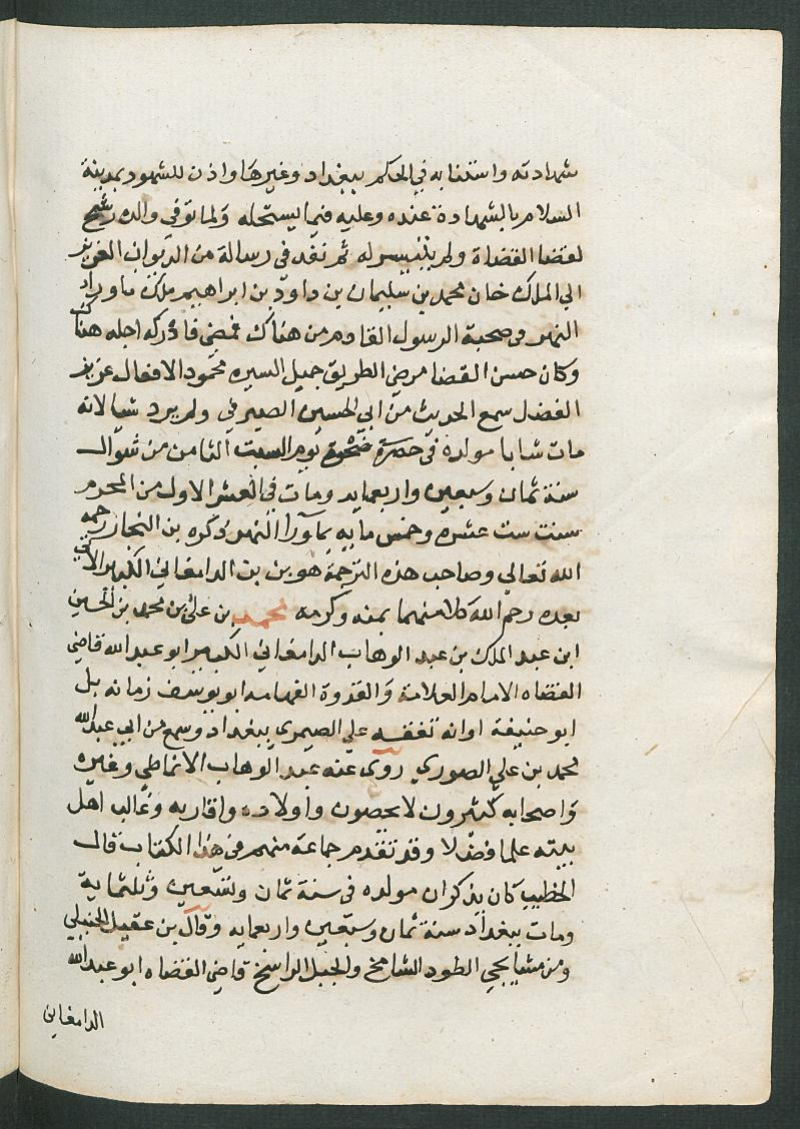 شهادته واستنابه في الحكم ببغداد وغيرها واذن للشهود بمدينة
السلام بالشهادة عنده وعليه فيما يسجله ولما توفي والده رشح
لقضا القضاة ولم يتيسر له ثم نفد في رسالة من الديوان العزيز
الي الملك خان محمد بن سليمان بن داود بن ابراهيم ملك ماوراء
النهر في صحبة الرسول القادم من هناك فمضى فادركه اجله هناك
وكان حسن القضا مرضي الطريق جميل السيره محمود الافعال عزيز
الفضل سمع الحديث من ابي الحسين الصيرفي ولم يرد شيا لانه
مات شابا مولده في ضحوة يوم السبت الثامن من شوال
سنة ثمان وسبعين واربعمايه ومات في العشر الاول من المحرم
سنت ست عشره وخمس مايه بماورا النهر ذكره بن النجار رحمه
الله تعالي وصاحب هذه الترجمة هو بن بنت الدامغاني الكبير الاتي
بعده رحم الله كلا منهما بمنه وكرمه محمد بن علي بن محمد بن الحسين
ابن عبد الملك بن عبد الوهاب الدامغاني الكبير ابو عبد الله قاضي
القضاه الامام العلامة والقدوة الفهامه ابو يوسف زمانه بل
ابو حنيفة اوانه تفقه علي الصيمري ببغداد وسمع من ابي عبد الله
محمد بن علي الصوري روى عنه عبد الوهاب الانماطي وغيره
واصحابه كثيرون لا يحصون واولاده واقاربه وغالب اهل
بيته علما فضلا وقد تقدم جماعة منهم في هذا الكتاب قال
الخطيب كان يذكر ان مولده في سنة ثمان وتسعين وثلثماية
ومات ببغداد سنة ثمان وسبعين واربعمايه وقال بن عقيل الحنبلي
ومن مشايخي الطود الشامخ والجبل الراسخ قاضي القضاه ابو عبد الله
الدامغاني